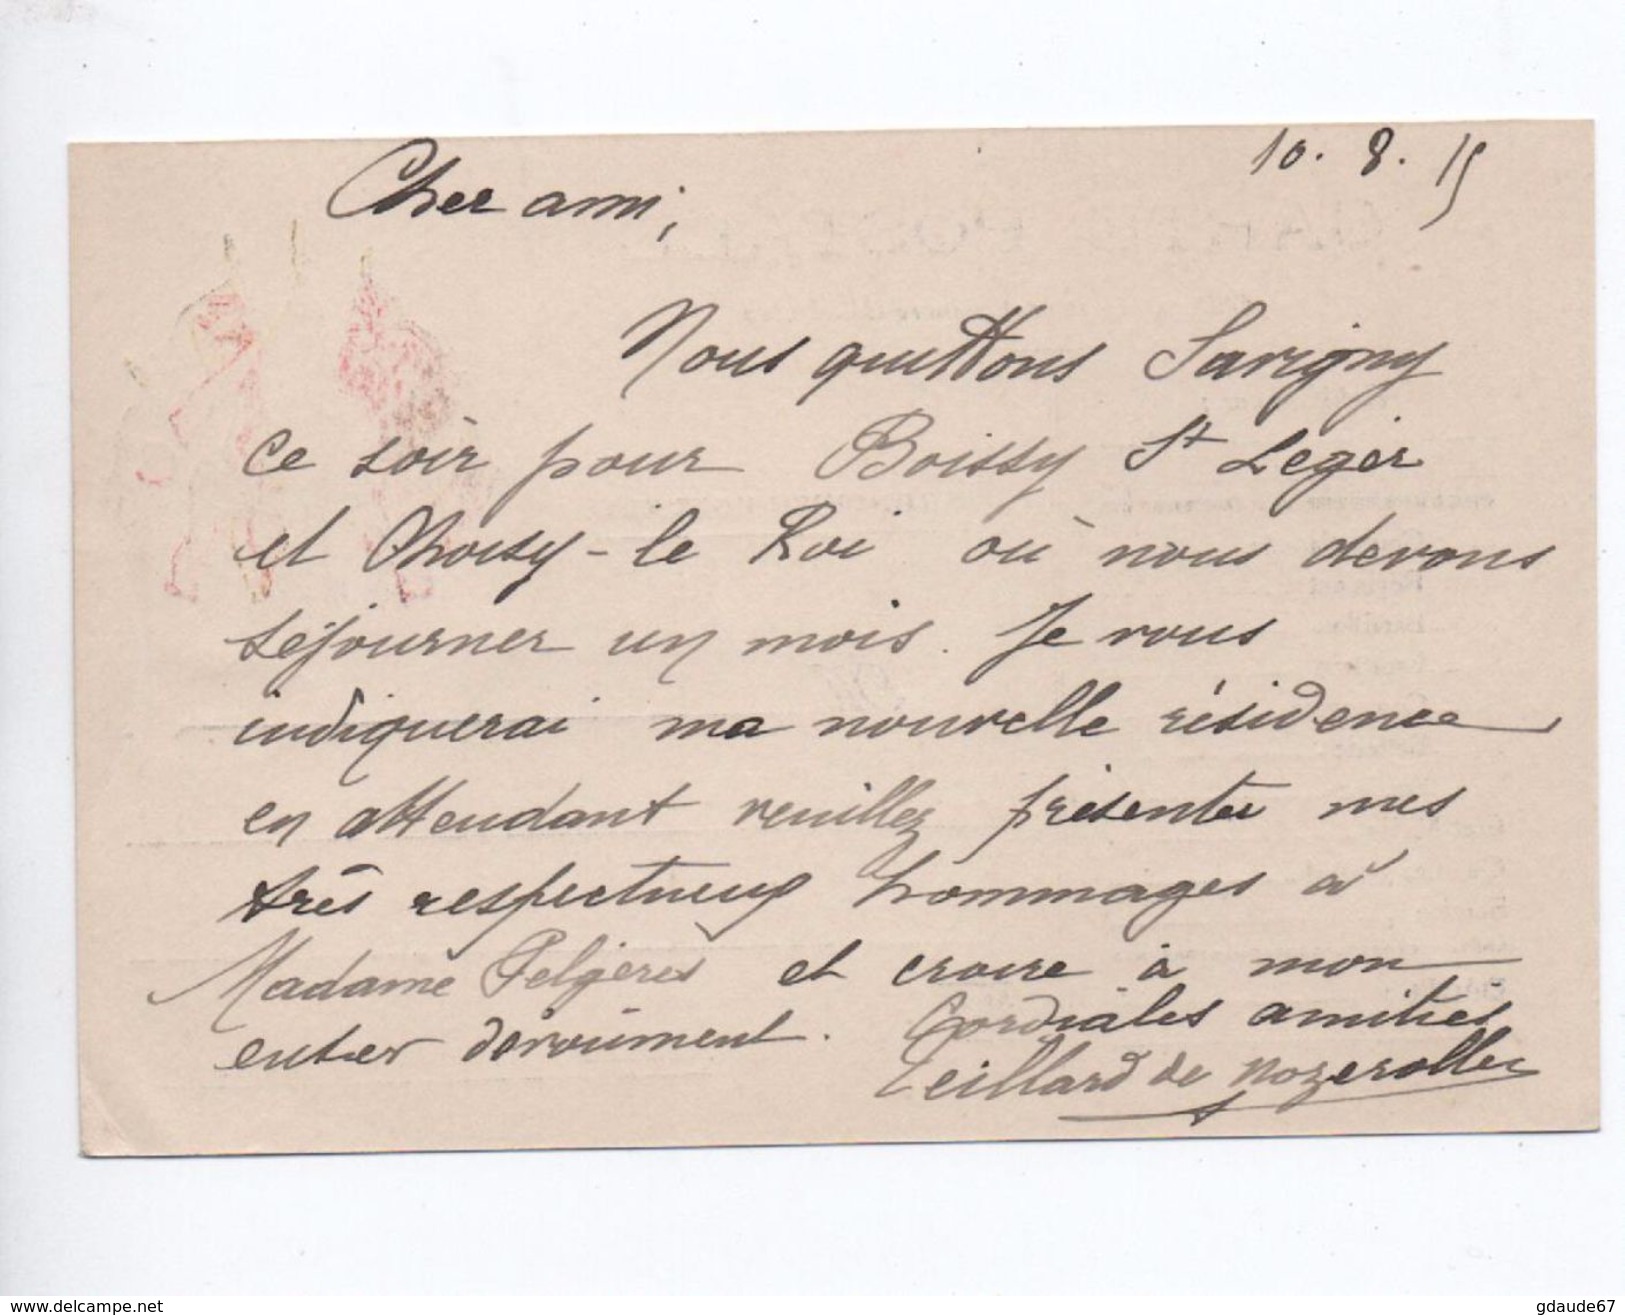 10. 8. 15
Cher ami,
Nous quittons Savigny
ce soir pour Boissy St Leger
et Choisy-le Roi où nous devons
séjourner un mois. Je vous
indiquerai ma nouvelle résidence
en attendant veuillez présenter mes
très respectueux hommages à
Madame Felgères et croire à mon
entier dévouement. Cordiales amitiés
Teillard de Nozerolles
www.delcampe.net
gdaude67